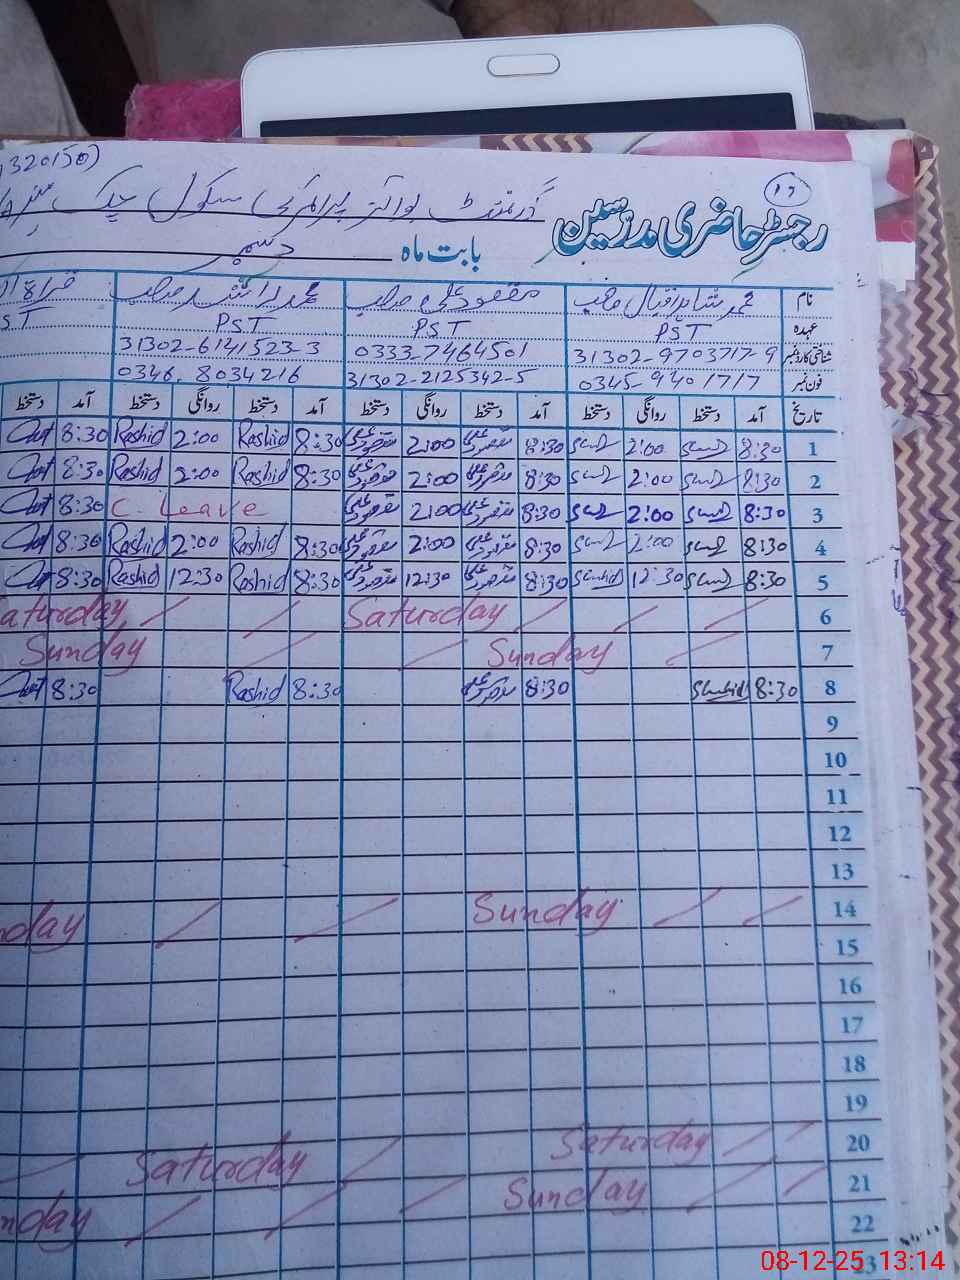 320150)
19
گورنمنٹ بوائز پرائمری سکول چک نمبر
رجسٹر حاضری مدرسین
بابت ماہ دسمبر
نام محمد شاہد اقبال صاحب مقصود علی صاحب محمد راشد صاحب
عہدہ PST PST PST ST
شناختی کارڈ نمبر 31302-9703717-9 0333-7464501 31302-6141523-3
فون نمبر 0345-9401717 31302-2125342-5 0346.8034216
تاریخ آمد دستخط روانگی دستخط آمد دستخط روانگی دستخط آمد دستخط روانگی دستخط آمد دستخط
1 8:30 2:00 8:30 مقصود علی 2:00 مقصود علی 8:30 Rashid 2:00 Rashid 8:30
2 8:30 2:00 8:30 مقصود علی 2:00 مقصود علی 8:30 Rashid 2:00 Rashid 8:30
3 8:30 2:00 8:30 مقصود علی 2:00 مقصود علی C. Leave 8:30
4 8:30 2:00 8:30 مقصود علی 2:00 مقصود علی 8:30 Rashid 2:00 Rashid 8:30
5 8:30 12:30 Shahid 8:30 مقصود علی 12:30 مقصود علی 8:30 Rashid 12:30 Rashid 8:30
6 Saturday aturday
7 Sunday Sunday
8 8:30 Shahid 8:30 مقصود علی 8:30 Rashid 8:30
9
10
11
12
13
14 Sunday nday
15
16
17
18
19
20 Saturday Saturday
21 Sunday nday
22
23
08-12-25 13:14